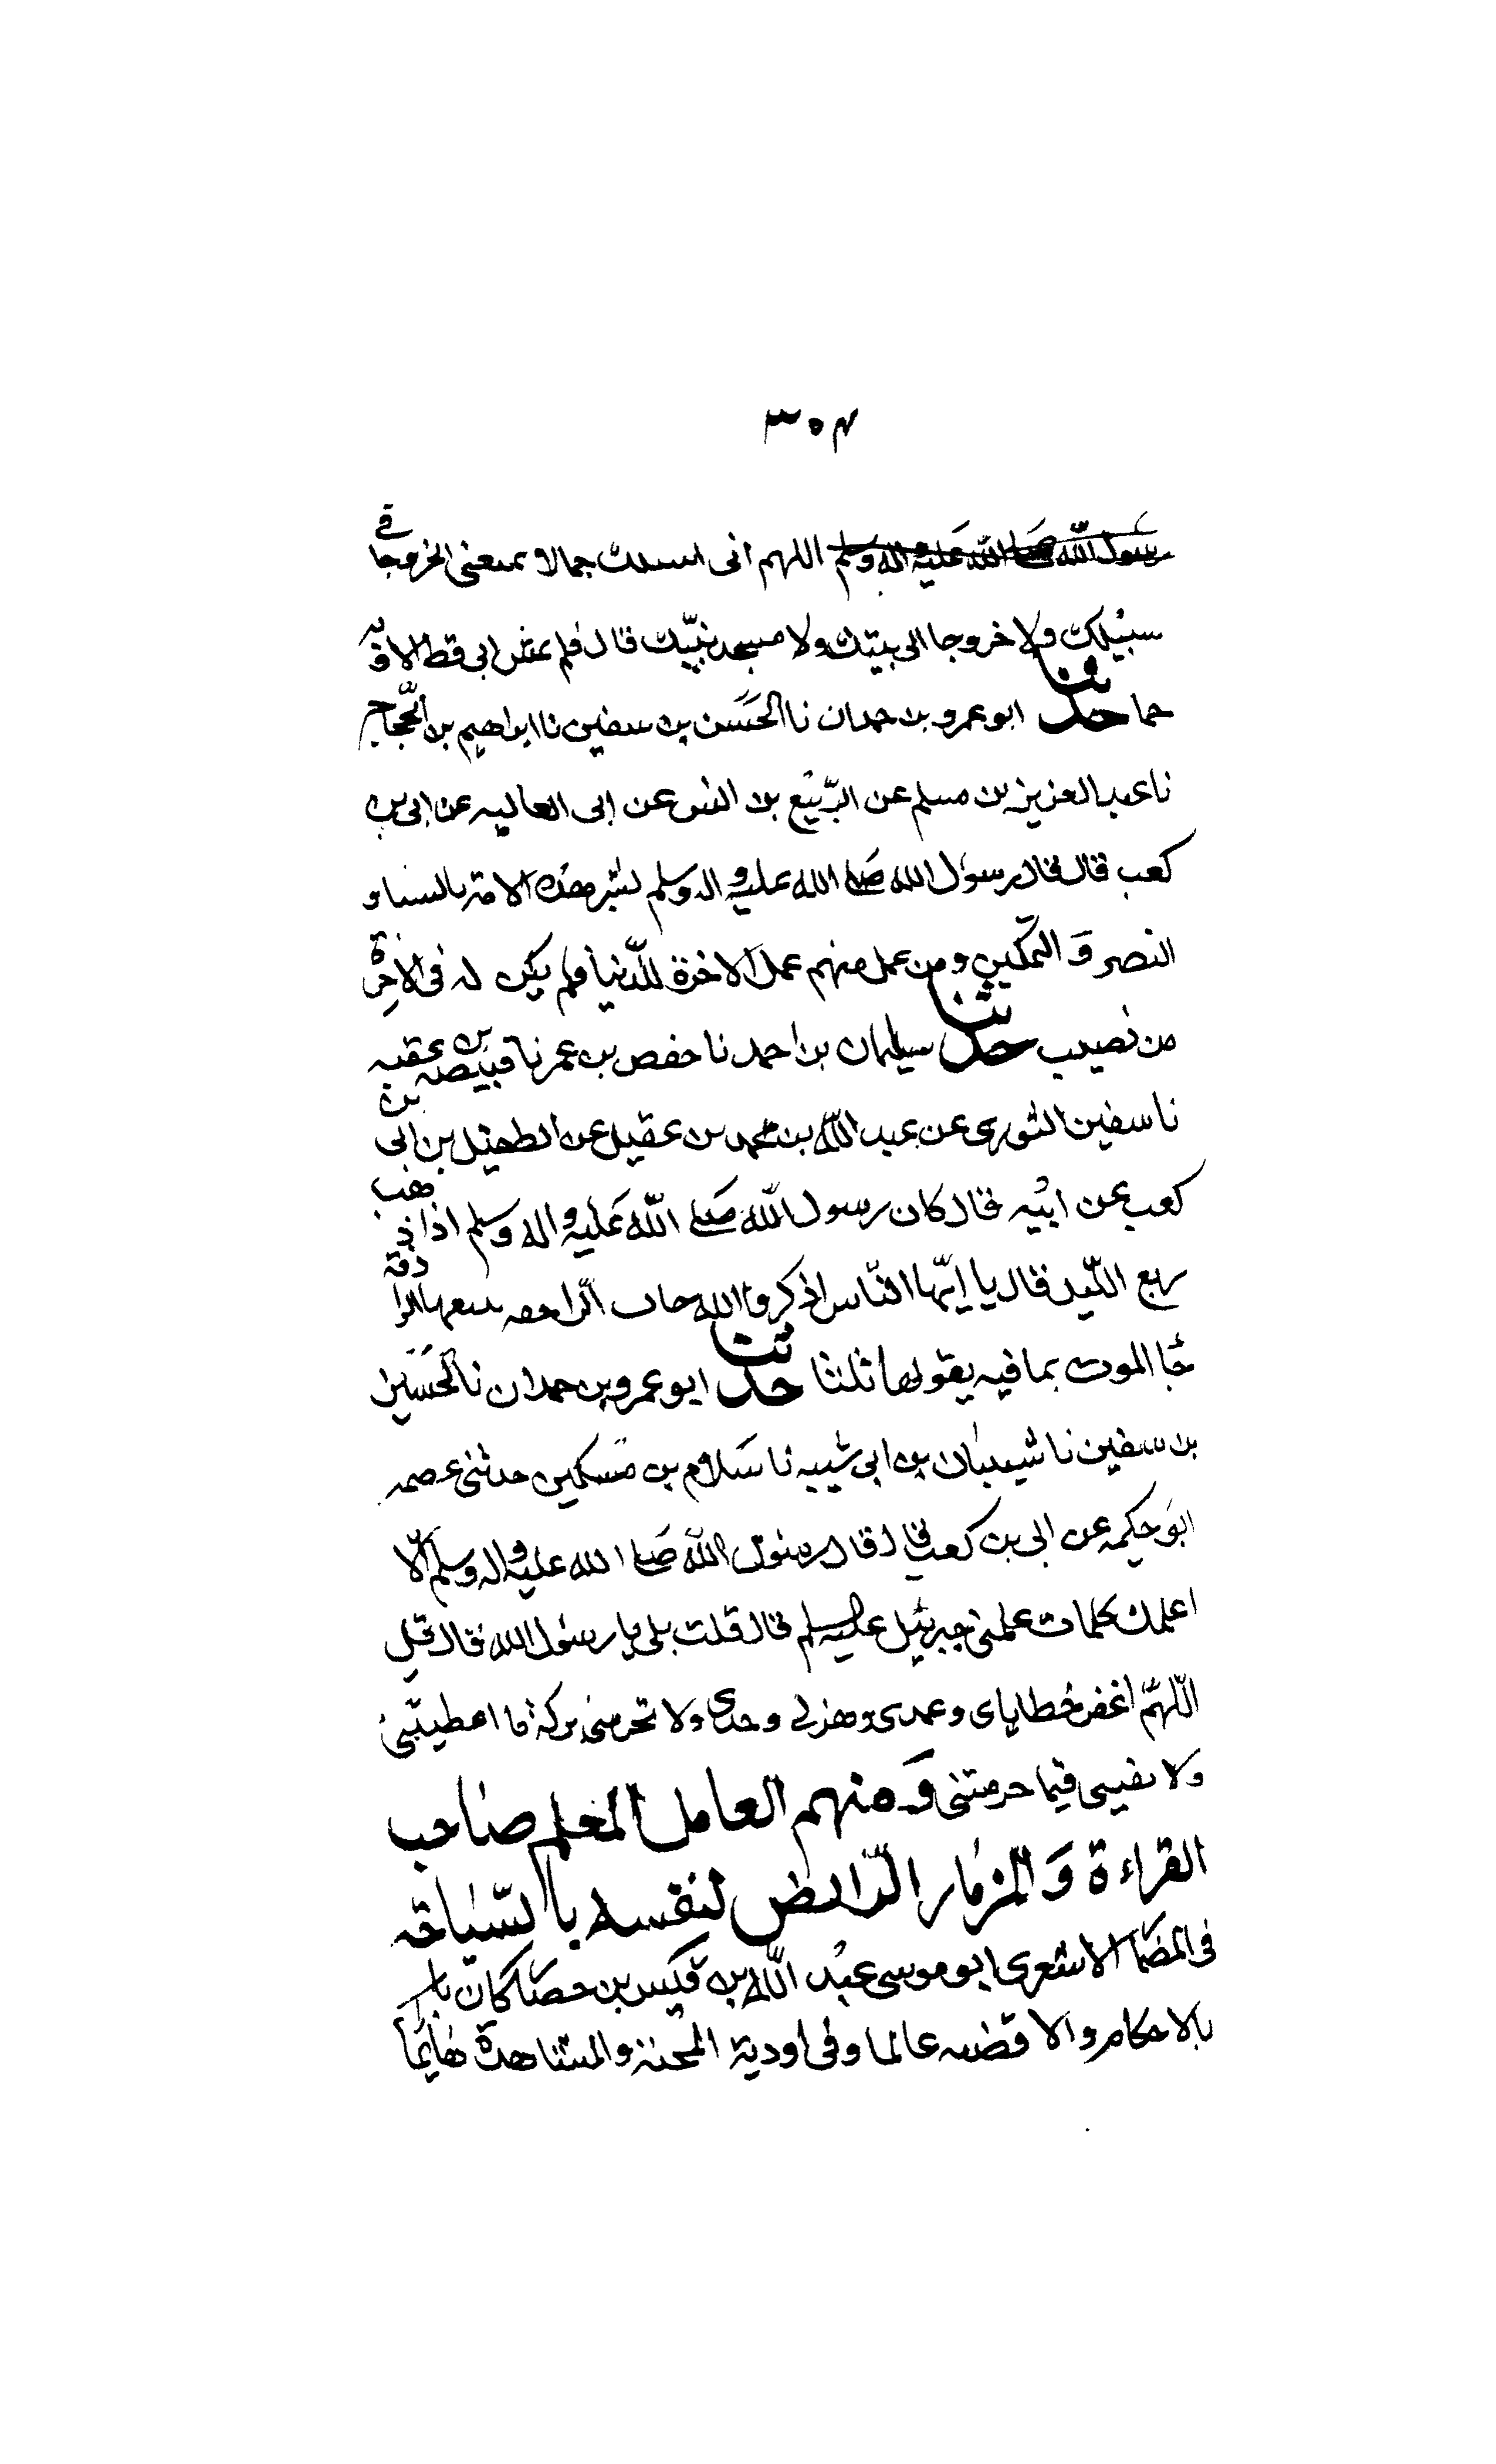 ٣٠٤
رسول الله صلى الله عليه واله وسلم اللهم انى اسئلك حمالا يمنعنى الخروجا فى
سبيلك ولا خروجا الى بيتك ولا مسجد نبيّك قال فلم يمش ابى قط الا وبه
حما حدثنا ابو عمرو بن حمدان نا الحَسَن بن سفين نا ابراهيم بن الحجّاج
نا عبد العزيز بن مسلم عن الرّبيع بن انس عن ابى العاليه عن ابى بن
كعب قال قال رسول الله صلى الله عليه واله وسلم بشر هذه الامة بالسناء و
النصر وَ التمكين ومن عمل منهم عمل الاخرة للدّنيا فلم يكن له فى الاخرة
من نصيب حدثنا سليمان بن احمد نا حفص بن عمر نا قبيصه بن عقبه
نا سفين الثورى عن عبد اللّه بن محمد بن عقيل عن الطفيل بن ابى بن
كعب عن ابيه قال كان رسول اللّه صَلى اللّه عَليه واله وسلم اذا ذهب
ربع اللّيل قال يا ايّها النّاس اذكروا الله جات الرّاجفه تتبعها الرادفة
جَا الموت بما فيه يقولها ثلثا حدثنا ابو عمرو بن حمدان نا الحَسَين
بن سفين نا شيبان بن ابى شيبه نا سَلام بن مسكين حدثنى عصمه
ابو حكيمه عن ابى بن كعب قال قال رسول اللّه صَلى الله عليه واله وسلم الّا
اعلمك كلمات علمنى جبرئيل عليه السلم قال قلت بلى يا رسول الله قال قل
اللّهمّ اغفر خطاياى وعمدى وهزلى وجدى ولا تحرمنى بركة ما اعطيتنى
ولا تفتنى فيما حرمتنى وَمنهم العامل المعلم صاحب
القراءة وَالمزمار الرّائض لنفسه بالسّياقه
فى المضما الاشعرى ابو موسى عبد اللّه بن قيس بن حصا كان
بالاحكام والاقضيه عالما وفى اودية المحنة والمشاهدة هائما